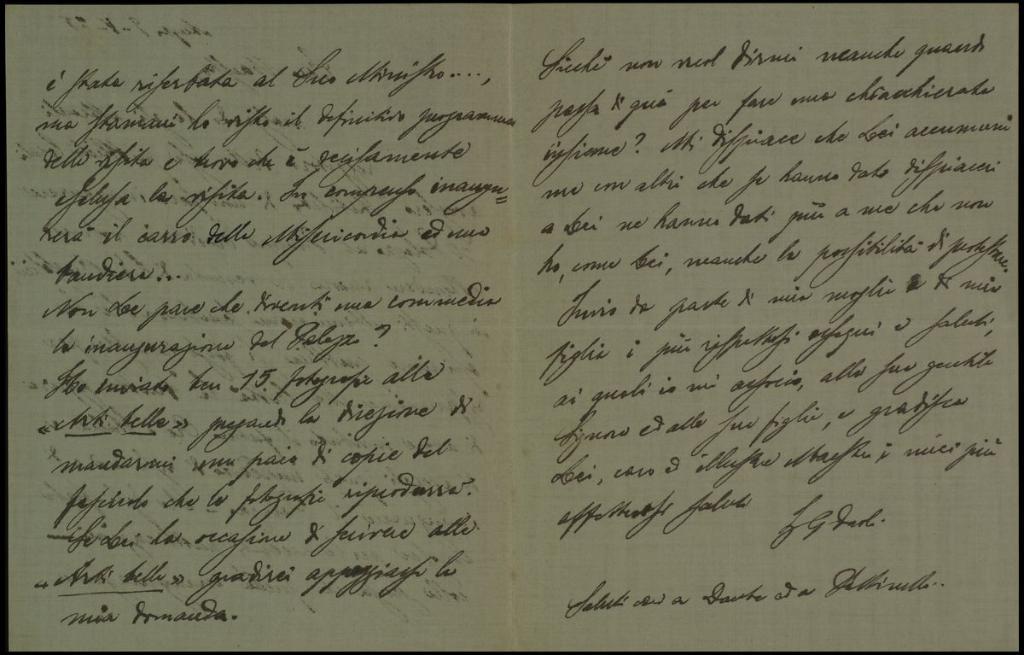 è stata riserbata al Suo Ministro....,
ma stamani ho visto il definitivo programma
della visita e trovo che è decisamente
esclusa la visita. In compenso inaugu=
rerà il carro della Misericordia ed una
bandiera...
Non Le pare che diventi una commedia
la inaugurazione del Palazzo?
Ho inviato ben 15 fotografie alla
« Arti belle » pregando la direzione di
mandarmi un paio di copie del
fascicolo che le fotografie riprodurrà.
Se Lei ha occasione di scrivere alle
« Arti belle » gradirei appoggiasse la
mia domanda.
Sicché non vuol dirmi neanche quando
passa di quà per fare una chiacchierata
insieme? Mi dispiace che Lei accomuni
me con altri che se hanno dato dispiaceri
a Lei ne hanno dati più a me che non
ho, come Lei, neanche la possibilità di protestare.
Invio da parte di mia moglie e di mia
figlia i più rispettosi ossequi e saluti,
ai quali io mi associo, alla sua gentile
Signora ed alla sua figlia, e gradisca
Lei, caro ed illustre Maestro i miei più
affettuosi saluti
Saluti cari a Dante ed a